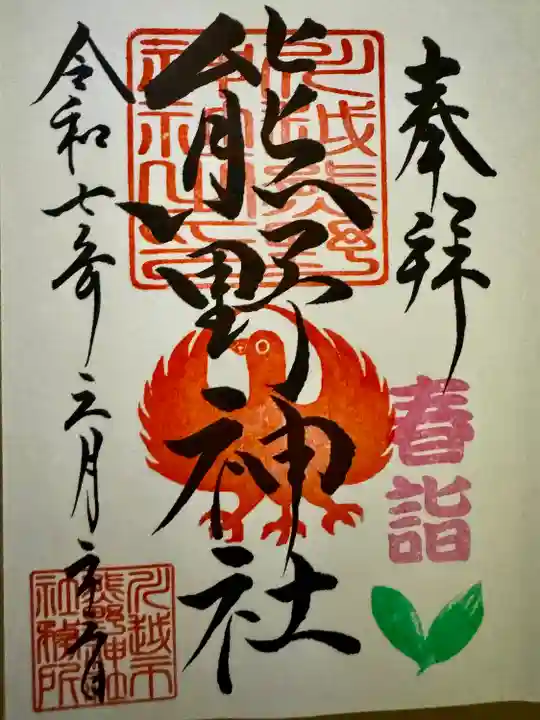 奉拝
春詣
熊野神社
川越熊野神社之印
令和七年三月二十六日
川越市熊野神社社務所